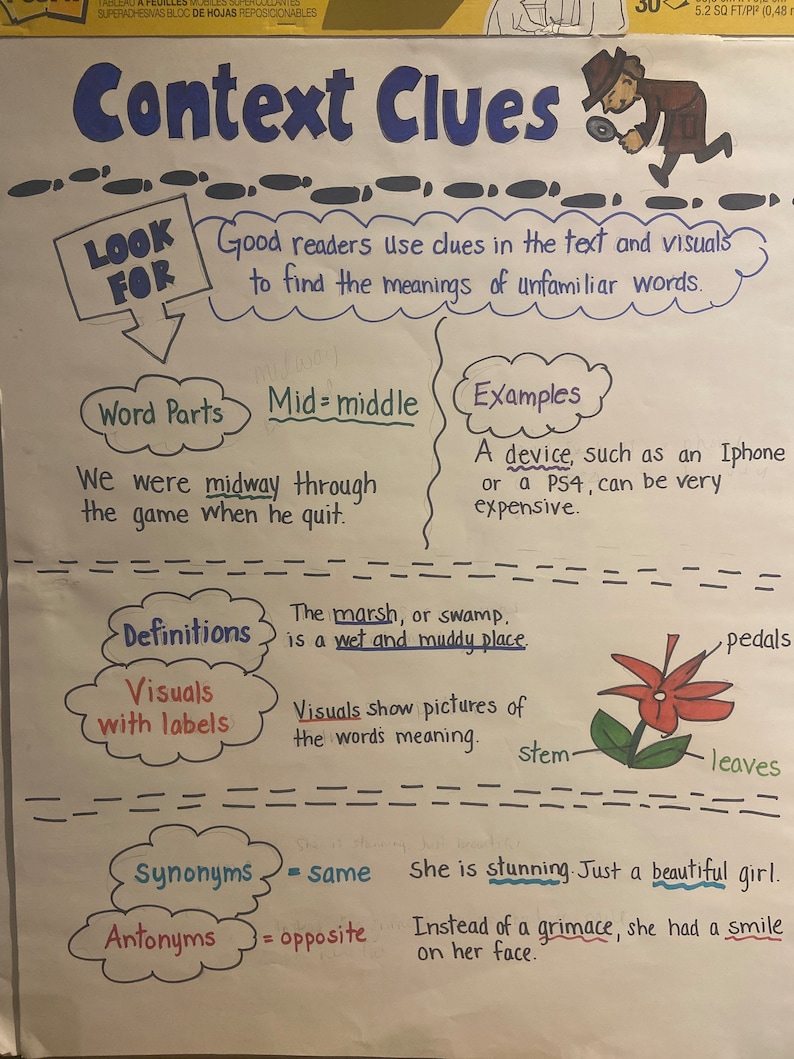 TABLEAU À FEUILLES MOBILES SUPERCOLLANTES
SUPERADHESIVAS BLOC DE HOJAS REPOSICIONABLES
30
5.2 SQ FT/PI² (0,48
Context Clues
LOOK
FOR
Good readers use clues in the text and visuals
to find the meanings of unfamiliar words.
Word Parts
Mid = middle
We were midway through
the game when he quit.
Examples
A device, such as an Iphone
or a PS4, can be very
expensive.
Definitions
The marsh, or swamp,
is a wet and muddy place.
Visuals
with labels
Visuals show pictures of
the words meaning.
pedals
stem
leaves
Synonyms
= same
She is stunning. Just a beautiful girl.
Antonyms
= opposite
Instead of a grimace, she had a smile
on her face.